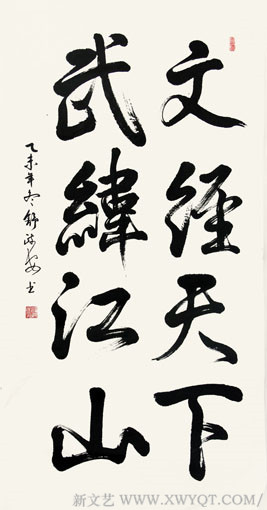 文經天下
武緯江山
乙未年冬舒
书
新文艺 WWW.XWYQT.COM/